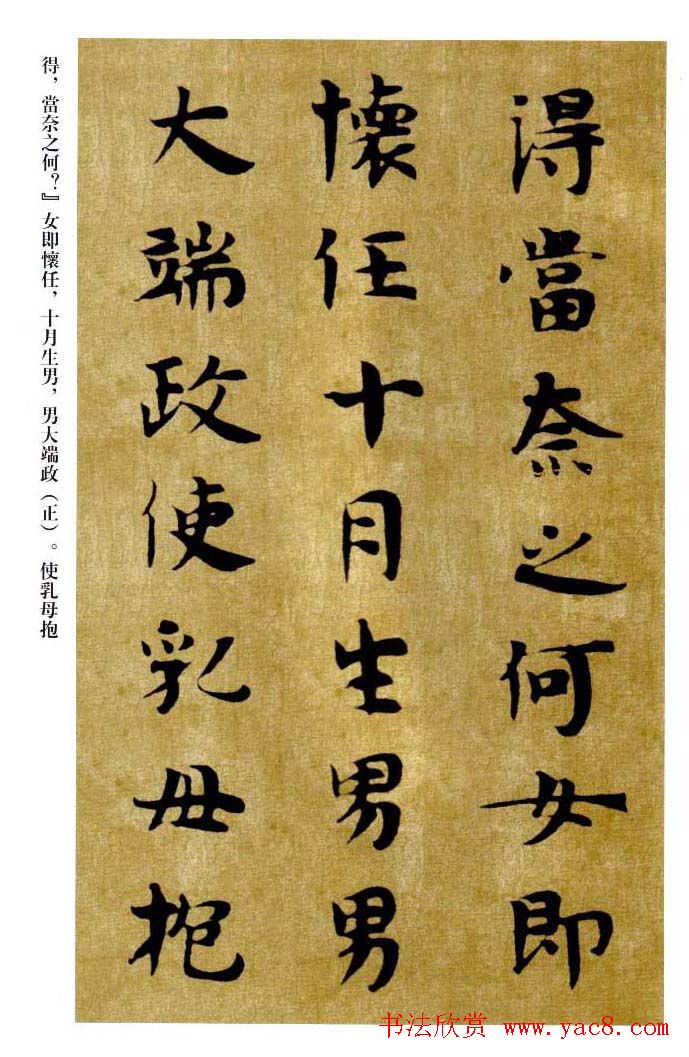 得當奈之何女即
懷任十月生男男
大端政使乳母抱
得，當奈之何？』女即懷任，十月生男，男大端政（正）。使乳母抱
书法欣赏 www.yac8.com